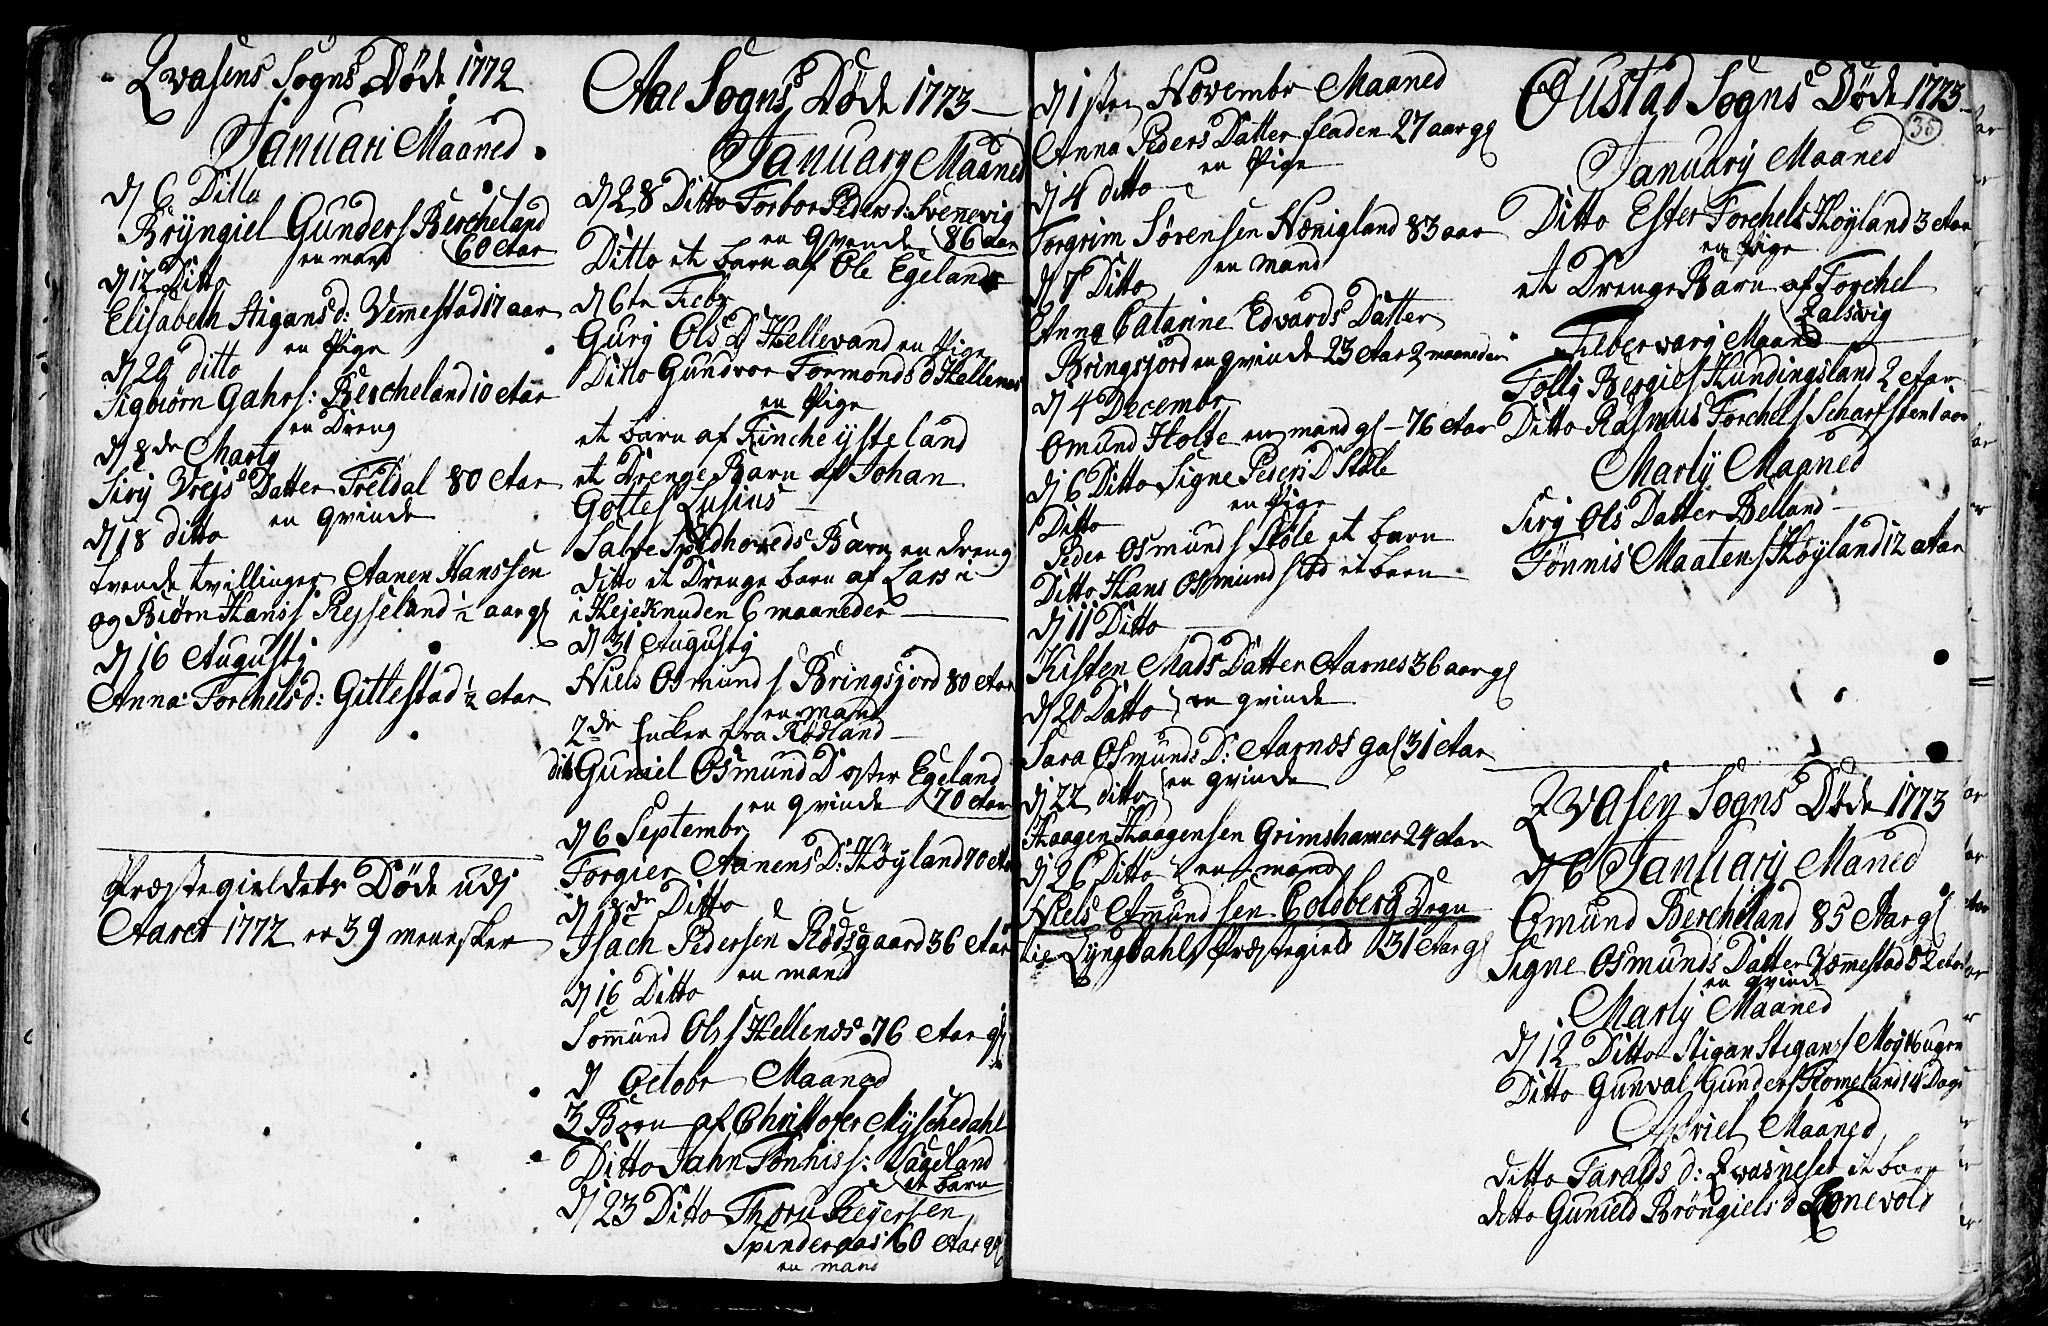 Qvasens Sogns Døde 1772
Januari Maaned
D 6 Ditto
Brÿngiel Gunders Bercheland
en mand 60 Aar
D 12 Ditto
Elisabeth Stigans d: Vemestad 17 aar
en Pige
D 20 ditto
Sigbiørn Gahrs: Bercheland 10 Aar
en Dreng
D 8de Marty
Sirj Vrejs Datter Treldal 80 Aar
en qvinde
D 18 ditto
tvende tvillinger Aanen Hanssen
og Biørn Hanss Reyseland ½ aar gl
D 16 Augusty
Anna Torchels d: Gittlestad ½ Aar
Præstegieldets Døde udj
Aaret 1772 er 39 menesker
Aae Sogns Døde 1773
January Maaned
D 28 Ditto Torbor Peders d: Svenevig
en Qvinde 86 aar
Ditto et barn af Ole Egeland
D 6te Febr
Gurj Ols D Hellevand en Pige
Ditto Gundvor Tormonds d Hellenes
en Pige
et barn af Tinche ÿsteland
et Drenge Barn af Johan
Gottes Lusius
Salve Spedhoveds Barn en dreng
ditto et Drenge barn af Lars i
i Hejeknuden 6 maaneder
D 31 Augusty
Niels Osmunds Bringsjord 80 Aar
en mand
2de Encker fra Rødland
dito Guniel Osmund D øster Egeland
en qvinde 70 Aar
D 6 Septembr
Torgier Aanens D: Høyland 70 Aar
D 8de Ditto
Isach Pedersen Rødsgaard 36 Aar
en mand
D 16 Ditto
Tommund Ols Hellenes 76 Aar gl
D Octobr Maaned
3 Børn af Christofer Nyschedahl
Ditto Jahn Tønnis s: Vageland
et barn
D 23 Ditto Thoru Reyersen
Spinderaas 60 Aar gl
en mand
D 1sten Novembr Maaned
Anna Peders Datter fladen 27 aar gl
en Pige
D 4 ditto
Torgrim Sørensen Hønigland 83 aar
en mand
D 7 Ditto
Anna Catarine Edvards Datter
Bringsjord en qvinde 23 Aar 2 maaneder
D 4 Decembr
Omund Holte en mand gl 76 Aar
D 6 Ditto Signe Peders D Støle
en Pige
Ditto
Peder Osmunds Støle et barn
Ditto Hans Osmunds Lød et barn
D 11 Ditto
Kisten Mads Datter Aarnes 36 aar gl
D 20 Ditto en qvinde
Sara Osmunds D: Aarnæs gal 31 Aar
D 22 ditto en qvinde
Haagen Haagensen Grimshamer 24 Aar
D 26 Ditto en mand
Niels Amundsen Coldberg Degn
til Lyngdahls Præstegield 31 Aar gl
Øustad Sogns Døde 1773
36
January Maaned
Ditto Ester Torchels Høyland 3 Aar
en Pige
et Drenge Barn af Torchel
Qalsvig
Feberwary Maaned
Tolly Bergies Hundingsland 2 Aar
Ditto Rasmus Torchels Scharfsten 1 aar
Marty Maaned
Siry Ols Datter Belland
Tønnis Maatens Høyland 12 Aar
Qvasen Sogns Døde 1773
D 6 January Maned
Omund Bercheland 85 Aar gl
Signe Osmunds Datter Vemestad 52 Aar
en qvinde
Marty Maaned
D 12 Ditto Stigan Stiganss Moy 16 ugen
Ditto Gunval Gunders Homeland 14 Dage
Apriel Maaned
ditto Taralds d: Qvasneset et barn
ditto Gunield Brøngiels d Egnevold